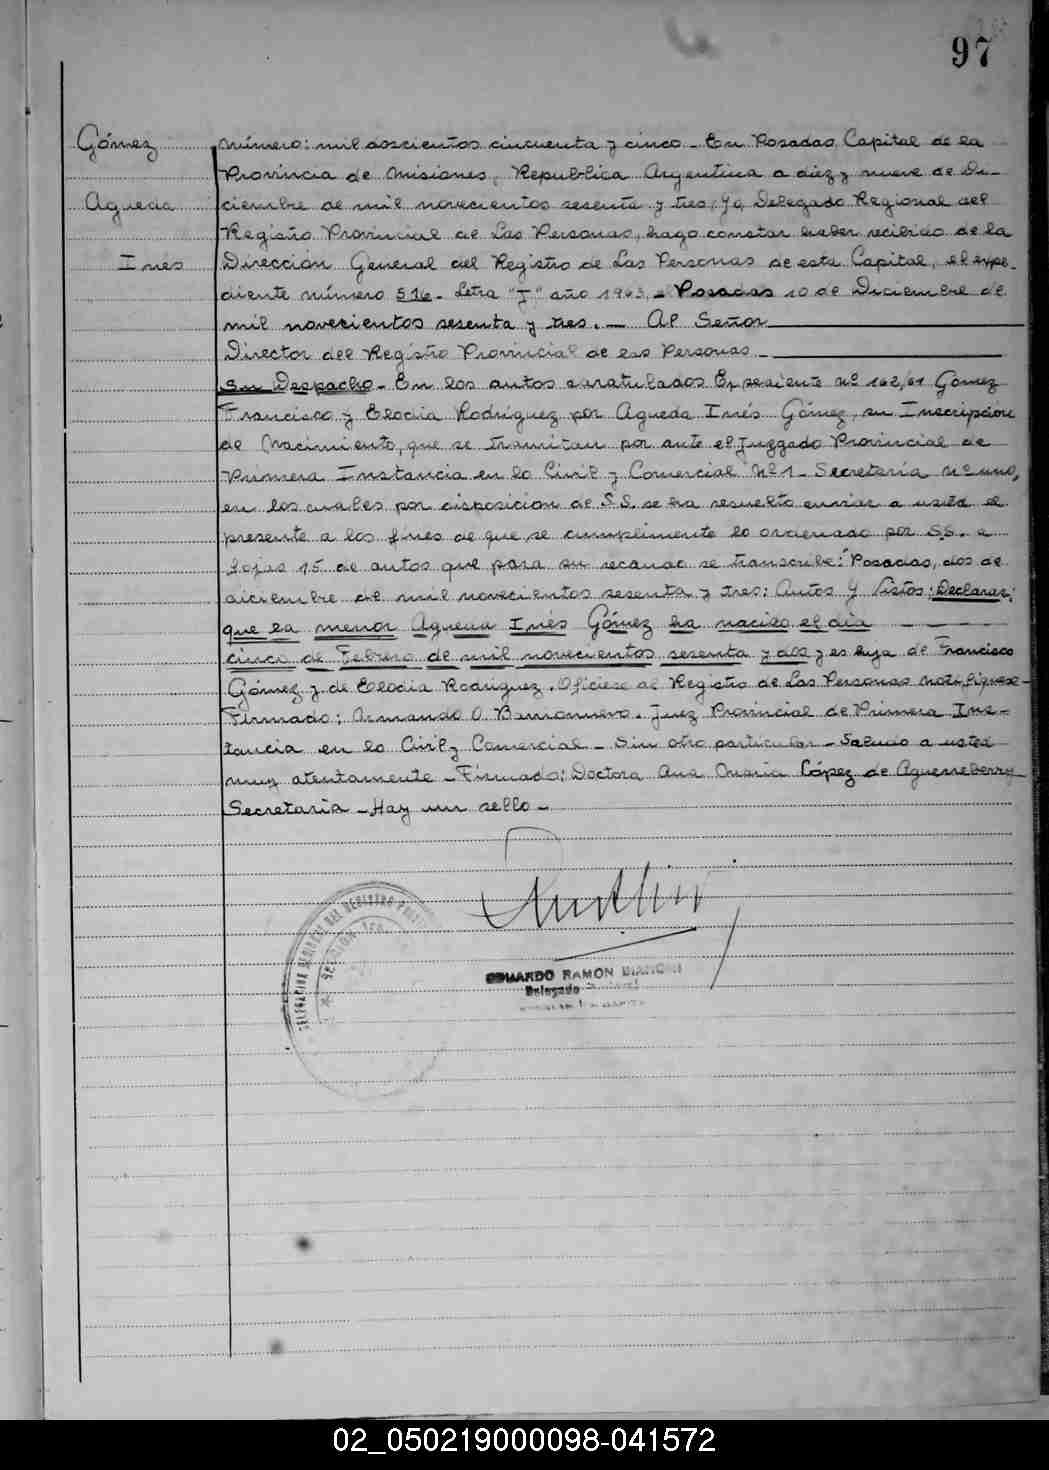 97
Gómez
Agueda
Inés
Número: mil doscientos cincuenta y cinco - En Posadas, Capital de la
Provincia de Misiones, Republica Argentina a diez y nueve de Di-
ciembre de mil novecientos sesenta y tres, Yo, Delegado Regional del
Registro Provincial de Las Personas, hago constar haber recibido de la
Dirección General del Registro de Las Personas de esta Capital, el expe-
diente número 516 - Letra "J" año 1963 - Posadas 10 de Diciembre de
mil novecientos sesenta y tres. - Al Señor
Director del Registro Provincial de las Personas -
Su Despacho - En los autos caratulados Expediente Nº 162/61 Gómez
Francisco y Elodia Rodriguez por Agueda Inés Gómez, su Inscripción
de Nacimiento, que se tramitan por ante el Juzgado Provincial de
Primera Instancia en lo Civil y Comercial Nº 1 - Secretaria Nº uno,
en los cuales por disposicion de S.S. se ha resuelto enviar a usted el
presente a los fines de que se cumplimente lo ordenado por S.S. a
fojas 15 de autos que para su recaudo se transcribe: "Posadas, dos de
diciembre de mil novecientos sesenta y tres: Autos y Vistos: Declarar:
que la menor Agueda Inés Gómez ha nacido el dia
cinco de Febrero de mil novecientos sesenta y dos y es hija de Francisco
Gómez y de Elodia Rodriguez. Ofíciese al Registro de Las Personas Notifíquese -
Firmado: Armando O Barrionuevo. Juez Provincial de Primera Ins-
tancia en lo Civil y Comercial - Sin otro particular - Saludo a usted
muy atentamente - Firmado: Doctora Ana Maria López de Aguerreberry -
Secretaria - Hay un sello -
DELEGACION REGIONAL DEL REGISTRO
SECCION
EDUARDO RAMON BIANCHI
Delegado
02_050219000098-041572